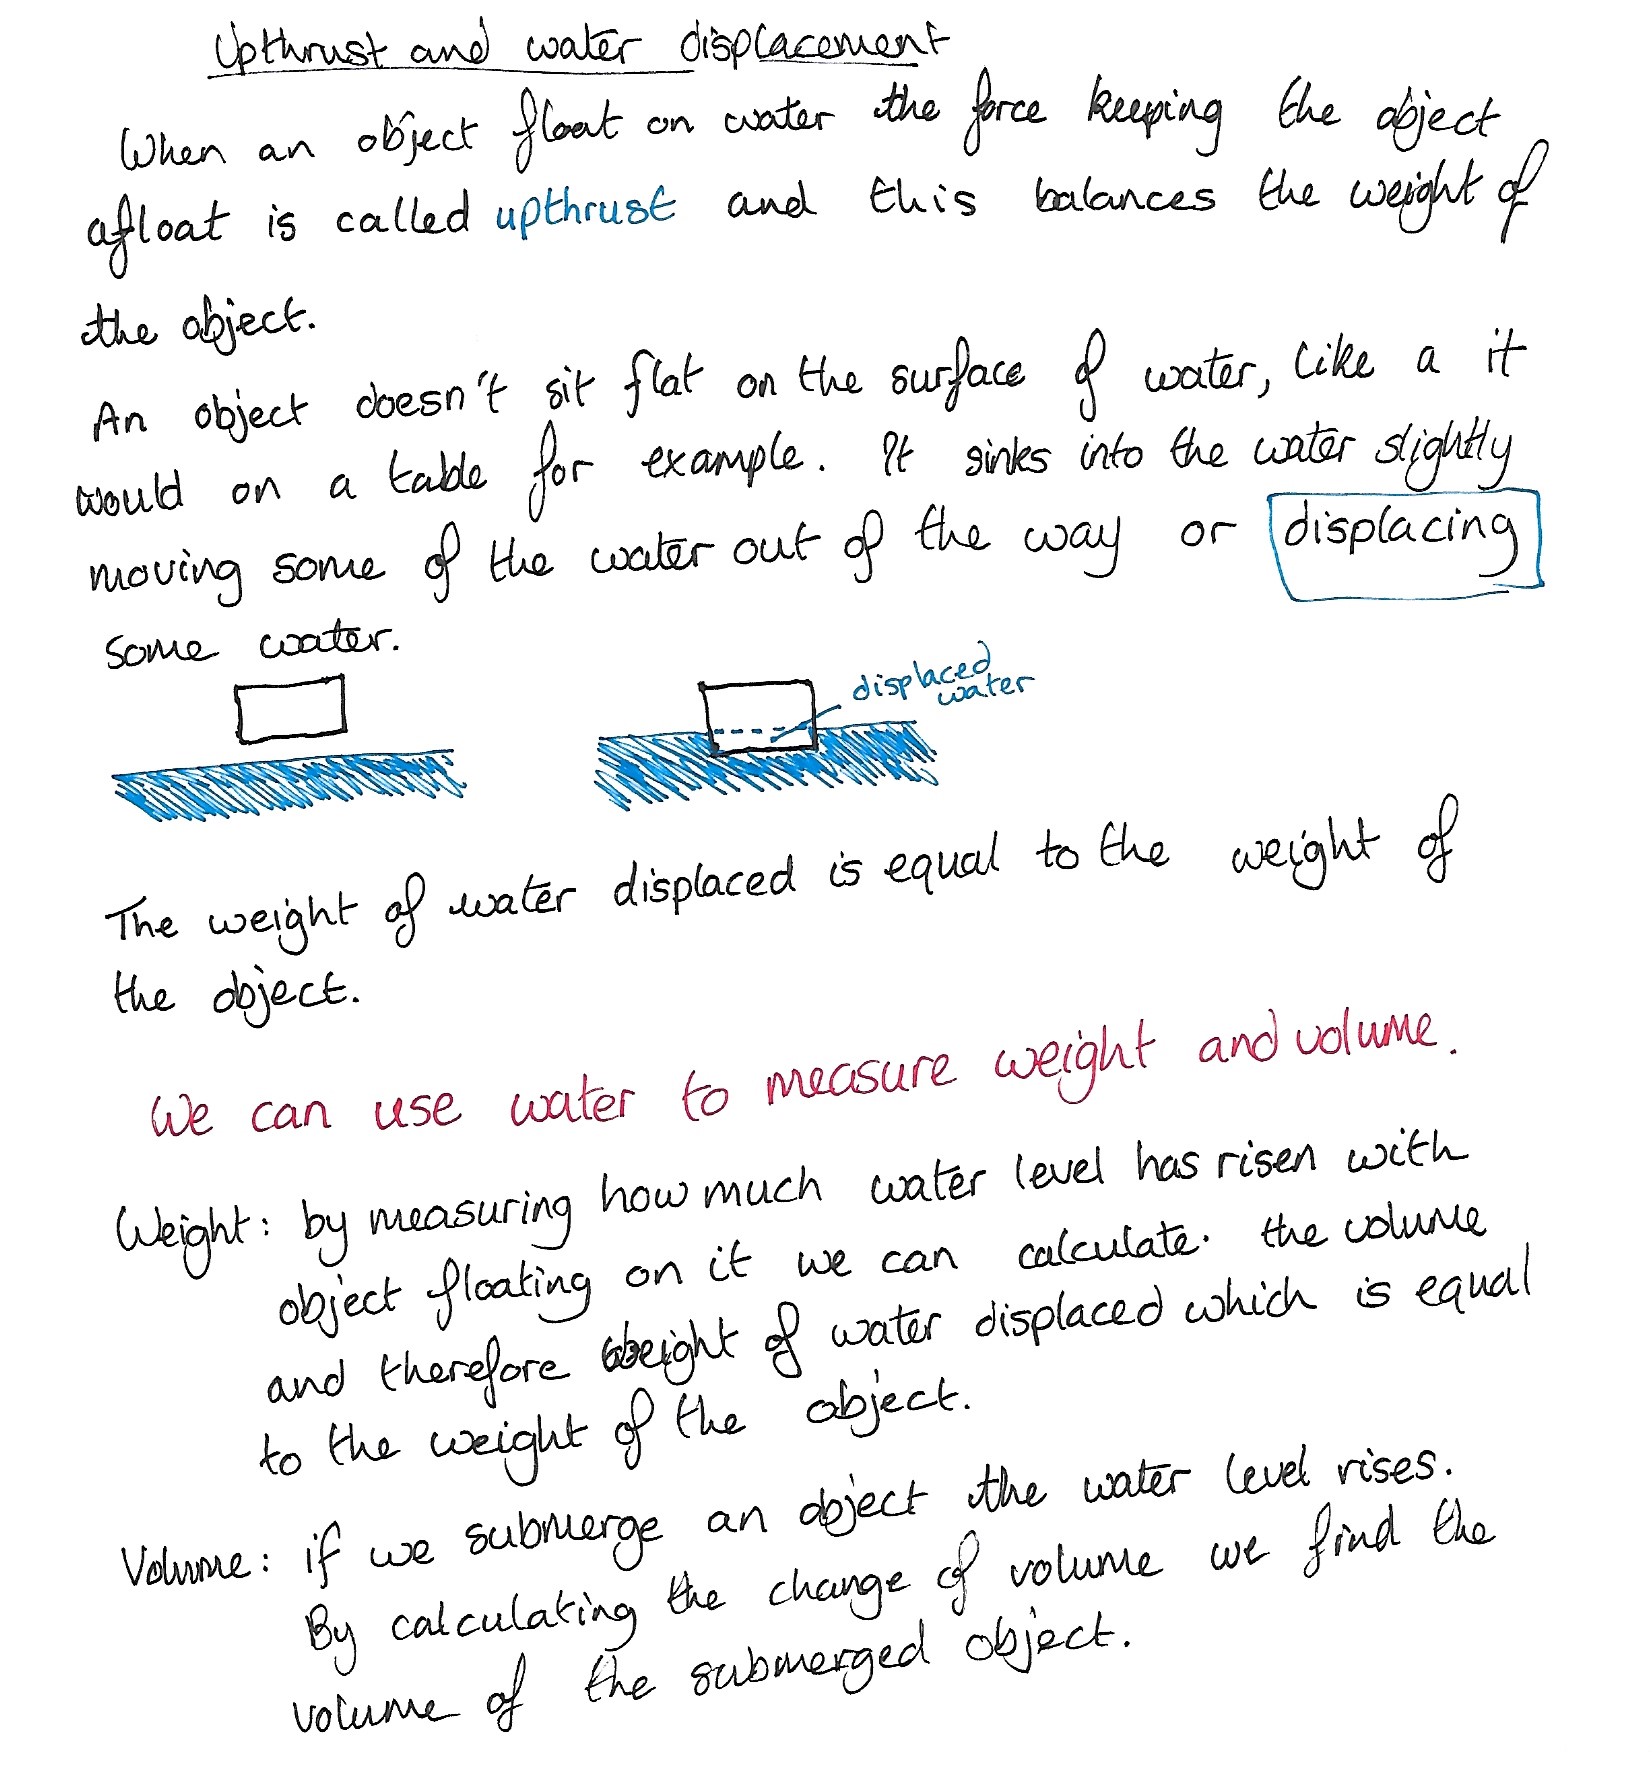 Upthrust and water displacement
When an object float on water the force keeping the object
afloat is called upthrust and this balances the weight of
the object.
An object doesn't sit flat on the surface of water, like a it
would on a table for example. It sinks into the water slightly
moving some of the water out of the way or displacing
some water.
displaced
water
The weight of water displaced is equal to the weight of
the object.
We can use water to measure weight and volume.
Weight: by measuring how much water level has risen with
object floating on it we can calculate. the volume
and therefore weight of water displaced which is equal
to the weight of the object.
Volume: if we submerge an object the water level rises.
By calculating the change of volume we find the
volume of the submerged object.